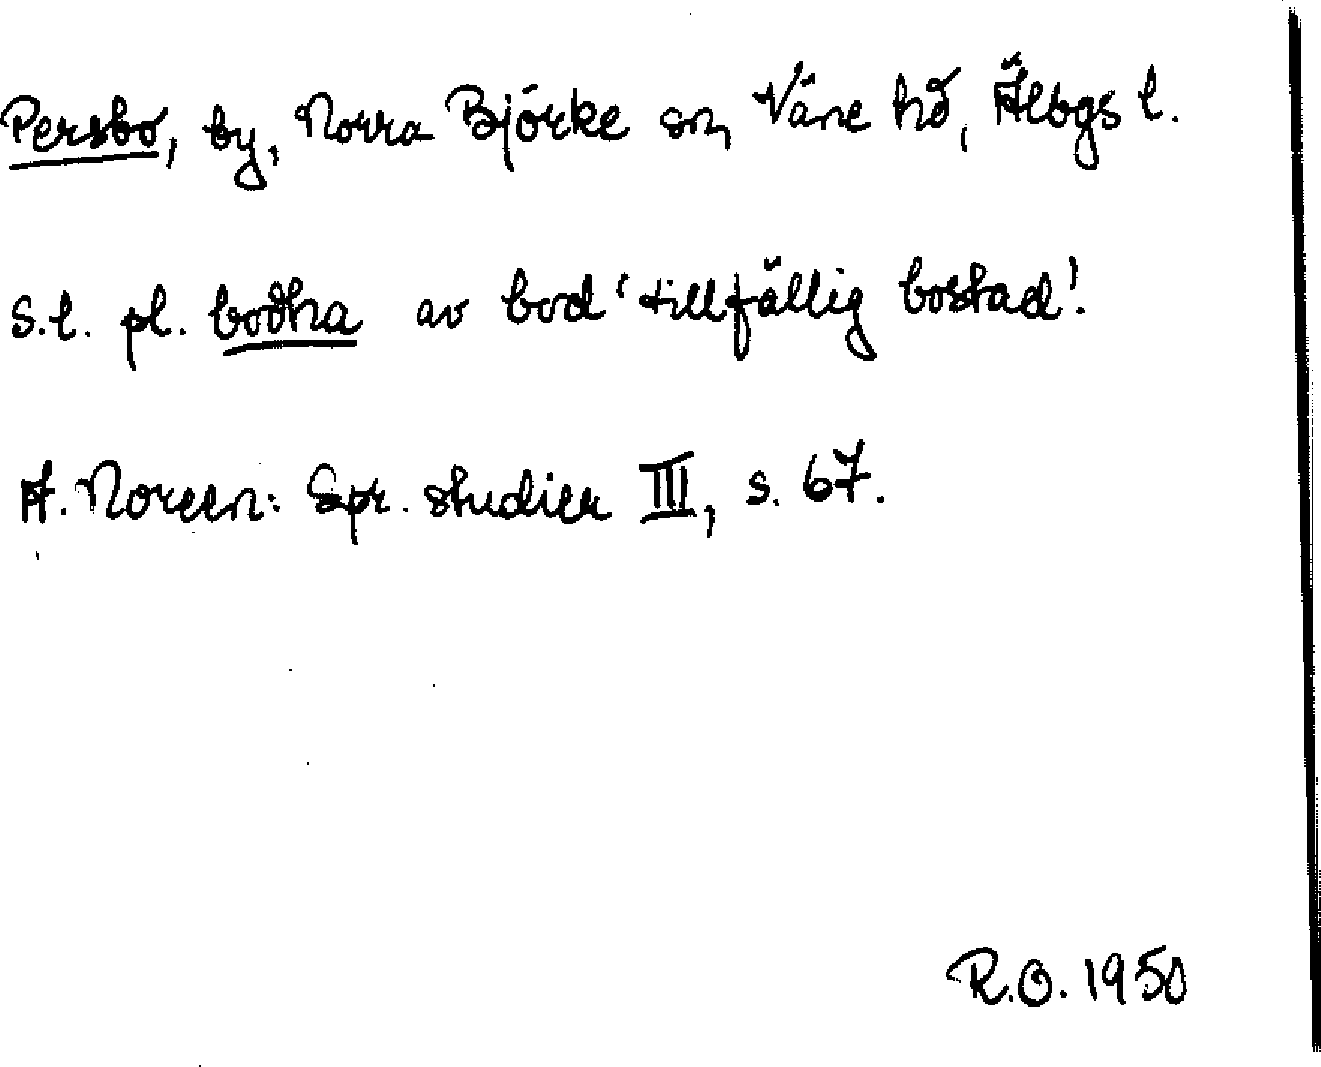 Persbo, by, Norra Björke sn, Väne hd, Älvbgs l.
S.l. pl. bodha av bod 'tillfällig bostad'.
A. Noreen: Spr. studier III, s. 67.
R.O. 1950